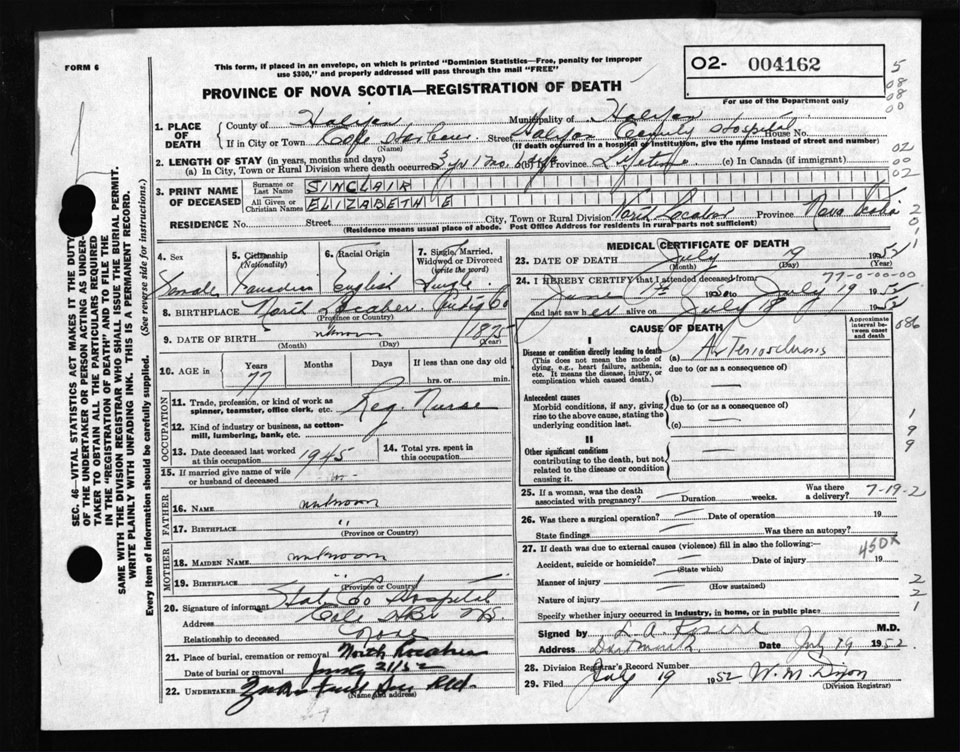 FORM 6
This form, if placed in an envelope, on which is printed "Dominion Statistics—Free, penalty for improper
use $300," and properly addressed will pass through the mail "FREE"
O2- 004162
For use of the Department only
PROVINCE OF NOVA SCOTIA—REGISTRATION OF DEATH
1. PLACE OF DEATH
County of Halifax Municipality of Halifax
If in City or Town Cole Harbour Street Halifax County Hospital House No.
(Name) (If death occurred in a hospital or institution, give the name instead of street and number)
2. LENGTH OF STAY (in years, months and days)
(a) In City, Town or Rural Division where death occurred 3 yrs 1 mo. (b) Province Lifetime (c) In Canada (if immigrant)
3. PRINT NAME OF DECEASED
Surname or Last Name SINCLAIR
All Given or Christian Names ELIZABETH E
RESIDENCE No. Street City, Town or Rural Division North Lochaber Province Nova Scotia
(Residence means usual place of abode. Post Office Address for residents in rural parts not sufficient)
4. Sex
Female
5. Citizenship (Nationality)
Canadian
6. Racial Origin
English
7. Single, Married, Widowed or Divorced (write the word)
Single
8. BIRTHPLACE North Lochaber Antig Co
(Province or Country)
9. DATE OF BIRTH unknown 1875
(Month) (Day) (Year)
10. AGE in Years Months Days If less than one day old
77 hrs. or min.
OCCUPATION
11. Trade, profession, or kind of work as spinner, teamster, office clerk, etc. Reg. Nurse
12. Kind of industry or business, as cotton-mill, lumbering, bank, etc.
13. Date deceased last worked at this occupation 1945
14. Total yrs. spent in this occupation
15. If married give name of wife or husband of deceased
FATHER
16. NAME unknown
17. BIRTHPLACE "
(Province or Country)
MOTHER
18. MAIDEN NAME unknown
19. BIRTHPLACE "
(Province or Country)
20. Signature of informant Hal. Co Hospital
Address Cole Hbr NS.
Relationship to deceased None
21. Place of burial, cremation or removal North Lochaber
Date of burial or removal July 21/52
22. UNDERTAKER
(Name and address)
MEDICAL CERTIFICATE OF DEATH
23. DATE OF DEATH July 19 1952
(Month) (Day) (Year)
24. I HEREBY CERTIFY that I attended deceased from
77-0-00-00
June 19 to July 19 1952
and last saw her alive on July 18 1952
CAUSE OF DEATH
Approximate interval between onset and death
I
Disease or condition directly leading to death (a) Arteriosclerosis
(This does not mean the mode of dying, e.g., heart failure, asthenia, etc. It means the disease, injury, or complication which caused death.)
due to (or as a consequence of)
Antecedent causes
Morbid conditions, if any, giving rise to the above cause, stating the underlying condition last.
(b)
due to (or as a consequence of)
(c)
II
Other significant conditions
contributing to the death, but not related to the disease or condition causing it.
25. If a woman, was the death associated with pregnancy? Duration weeks. Was there a delivery? 7-19-2
26. Was there a surgical operation? Date of operation 19
State findings Was there an autopsy?
27. If death was due to external causes (violence) fill in also the following:— 450X
Accident, suicide or homicide? Date of injury 19
(State which)
Manner of injury
(How sustained)
Nature of injury
Specify whether injury occurred in industry, in home, or in public place
Signed by M.D.
Address Dartmouth Date July 19 1952
28. Division Registrar's Record Number
29. Filed July 19 1952 W. M. Dixon
(Division Registrar)
SEC. 46—VITAL STATISTICS ACT MAKES IT THE DUTY
OF THE UNDERTAKER OR PERSON ACTING AS UNDER-
TAKER TO OBTAIN ALL THE PARTICULARS REQUIRED
IN THE "REGISTRATION OF DEATH" AND TO FILE THE
SAME WITH THE DIVISION REGISTRAR WHO SHALL ISSUE THE BURIAL PERMIT.
WRITE PLAINLY WITH UNFADING INK. THIS IS A PERMANENT RECORD.
Every item of information should be carefully supplied. (See reverse side for instructions.)
5
08
08
00
02
00
02
2
0
1
1
086
1
9
9
2
2
1